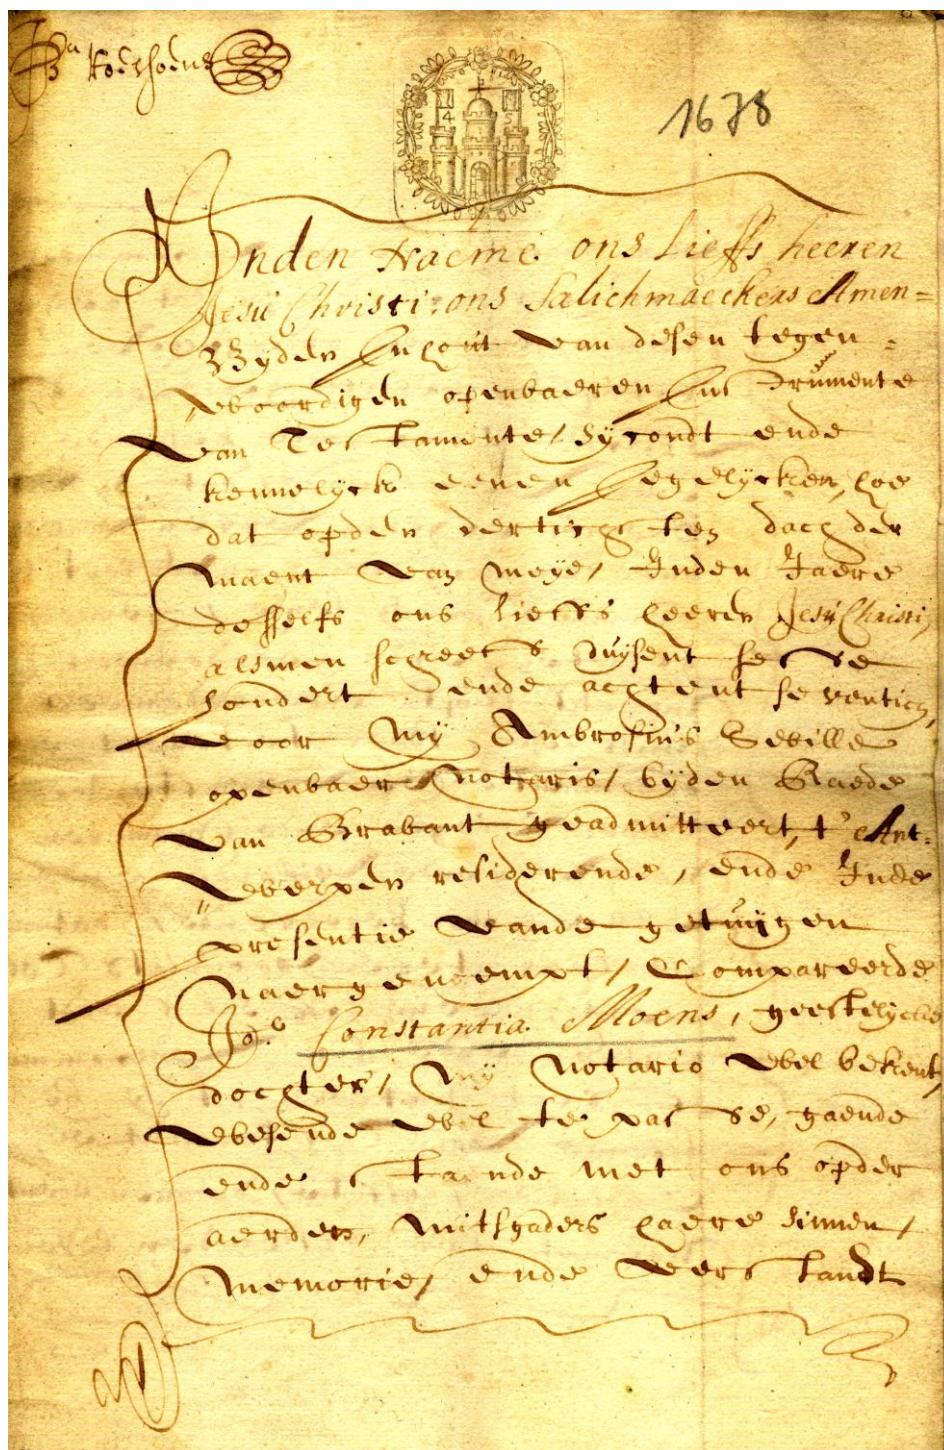 1678
4 5
Inden Naeme ons Lieffs heeren
Jesu Christi ons Salichmaeckers Amen =
Byden Inhout van desen tegen =
woordigen openbaeren Instrumente
van Testamente, sy condt ende
kennelyck eenen Iegelycken, hoe
dat opden dertichsten dach der
maent van meye, Inden Jaere
desselfs ons lieffs heeren Jesu Christi,
alsmen schreeff duysent sesse
hondert ende achtentseventich,
voor my Ambrosius Seville
openbaer Notaris, byden Raede
van Brabant geadmitteert, t'Ant=
werpen residerende, ende Inde
presentie vande getuygen
naergenoempt, Compareerde
Jo.e Constantia Moens, geestelycke
dochter, my Notario wel bekent,
wesende wel te passe, gaende
ende staende met ons opder
aerden, mitsgaders haere sinnen,
memorie, ende verstandt